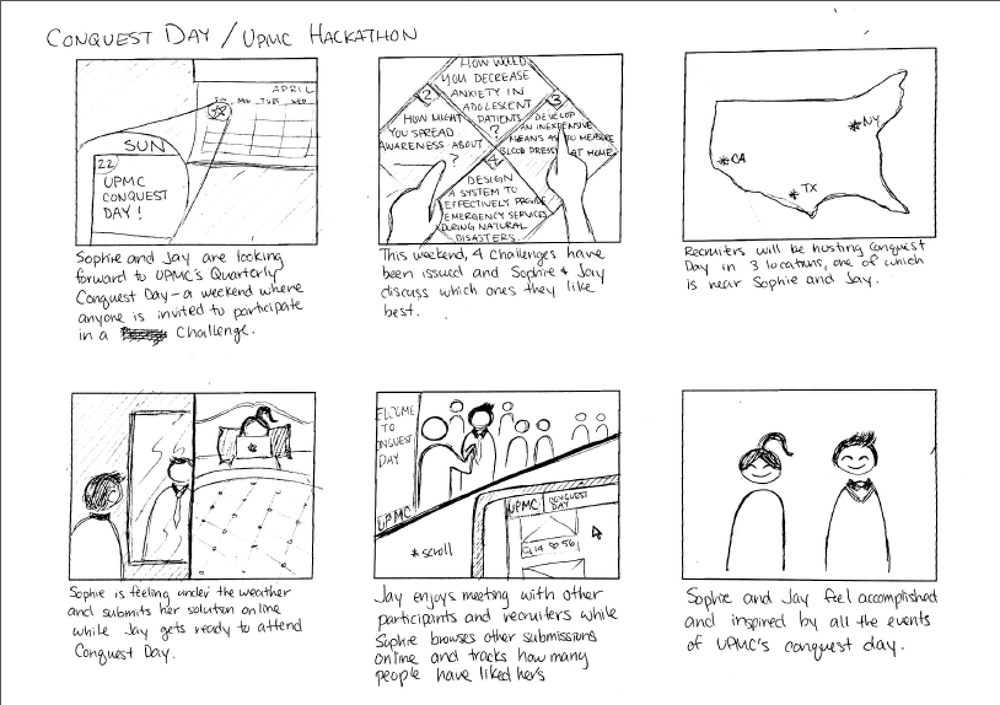 CONQUEST DAY / UPMC HACKATHON
APRIL
SUN MON TUES WED
SUN
22
UPMC
CONQUEST
DAY!
Sophie and Jay are looking
forward to UPMC's Quarterly
Conquest Day - a weekend where
anyone is invited to participate
in a Challenge.
HOW WOULD
YOU DECREASE
ANXIETY IN
ADOLESCENT
PATIENTS
?
2
HOW MIGHT
YOU SPREAD
AWARENESS ABOUT
?
3
DEVELOP
AN INEXPENSIVE
MEANS TO MEASURE
BLOOD PRESS AT HOME
4
DESIGN
A SYSTEM TO
EFFECTIVELY PROVIDE
EMERGENCY SERVICES
DURING NATURAL
DISASTERS.
This weekend, 4 challenges have
been issued and Sophie + Jay
discuss which ones they like
best.
*NY
*CA
*TX
Recruiters will be hosting Conquest
Day in 3 locations, one of which
is near Sophie and Jay.
Sophie is feeling under the weather
and submits her solution online
while Jay gets ready to attend
Conquest Day.
ELCOME
TO
ONQUEST
DAY
UPMC
*scroll
UPMC CONQUEST
DAY
14 56
Jay enjoys meeting with other
participants and recruiters while
Sophie browses other submissions
online and tracks how many
people have liked hers
Sophie and Jay feel accomplished
and inspired by all the events
of UPMC's conquest day.